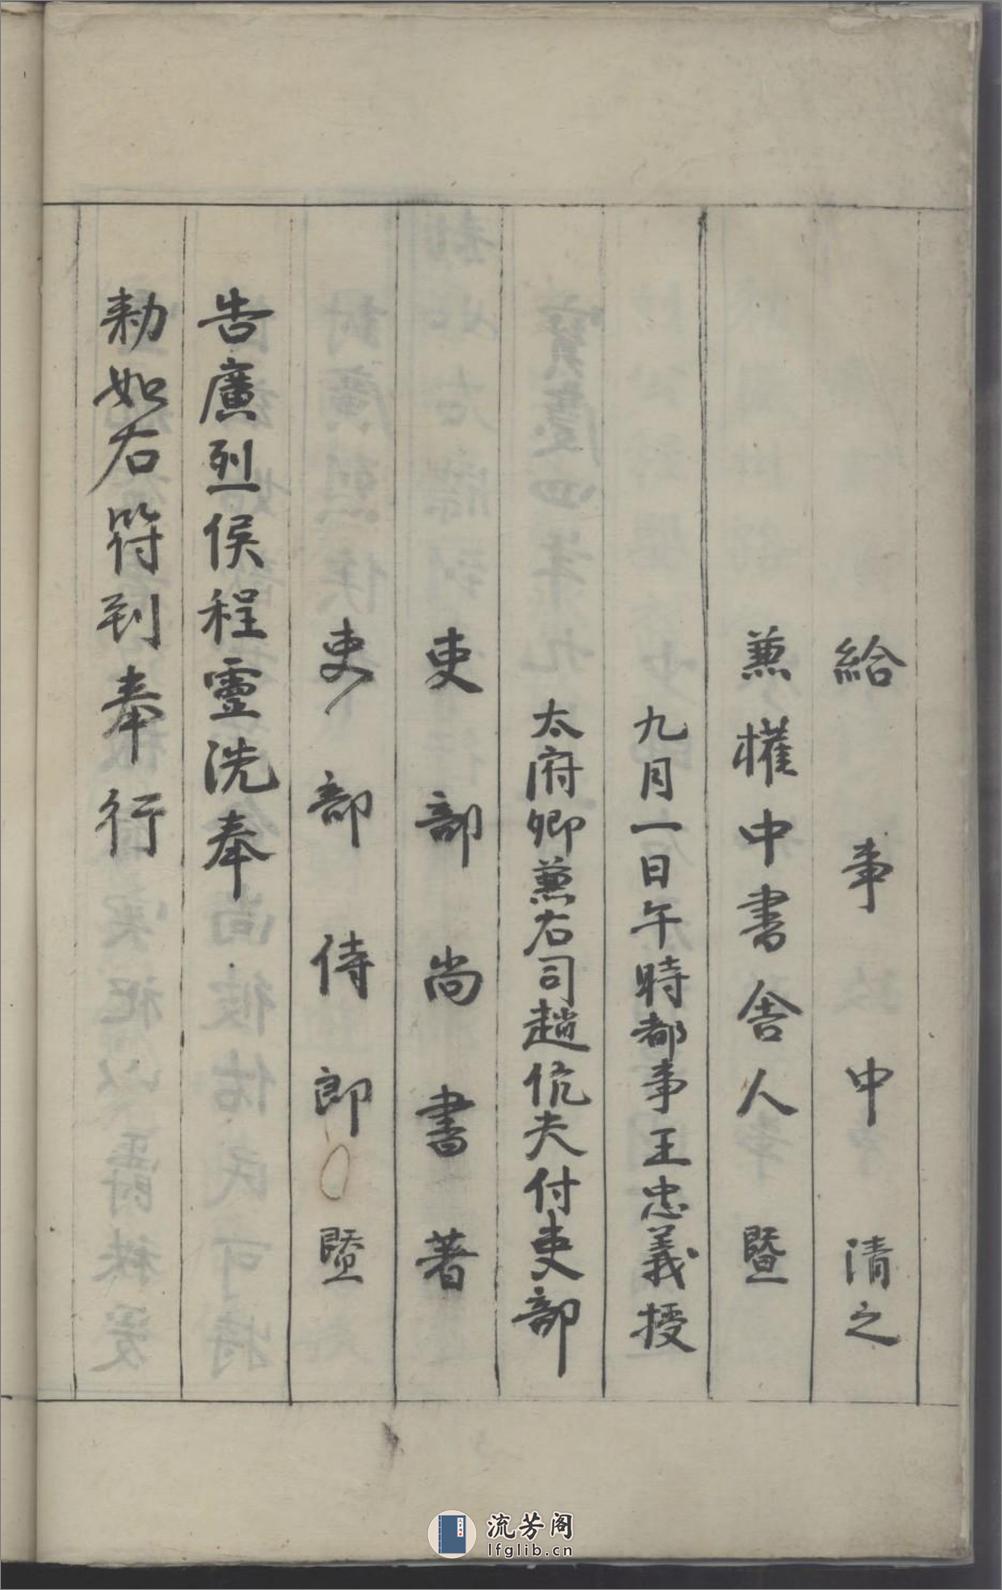 給事中清之
兼權中書舍人暨
九月一日午時都事王忠義授
太府卿兼右司趙伉夫付吏部
吏部尚書著
吏部侍郎暨
告廣烈侯程靈洗奉
勅如右符到奉行
流芳阁
lfglib.cn